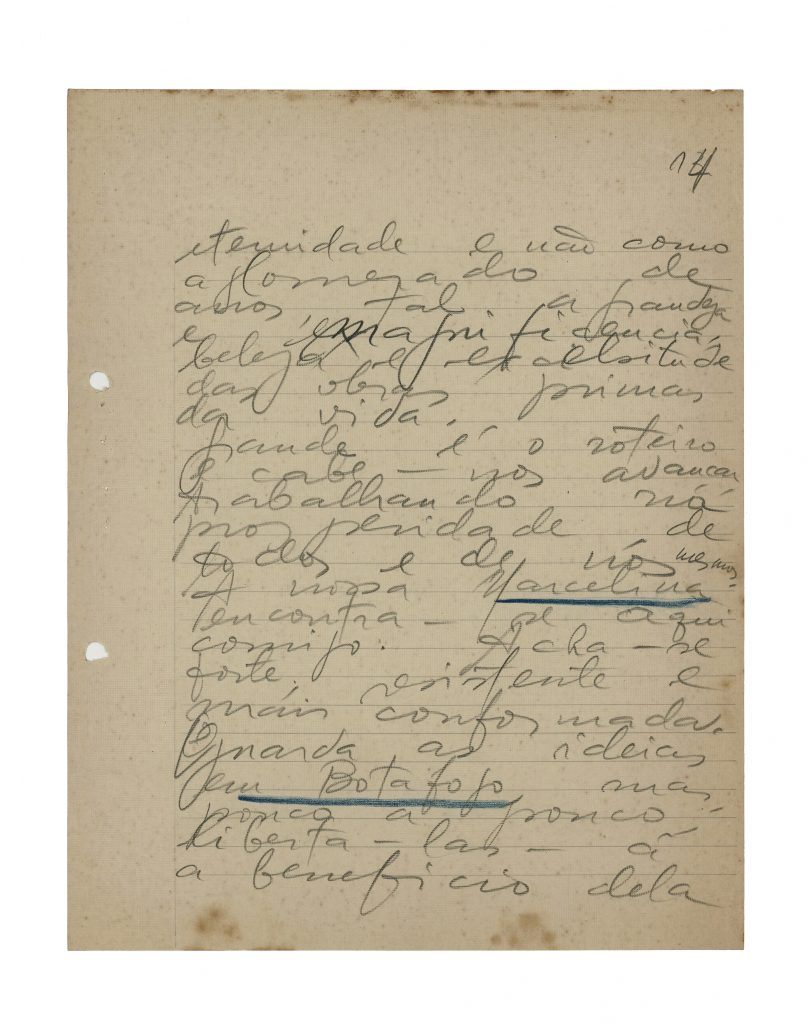 14
eternidade e não como
aglomerado de
anos, tal a grandeza
e magnificencia,
beleza e excelsitude
das obras primas
da vida.
Grande é o roteiro
e cabe-nos avançar
trabalhando na
prosperidade de
todos e de nós mesmos.
A nossa Marcelina
encontra-se aqui
comigo. Acha-se
forte, resistente e
mais conformada.
Guarda as ideias
em Botafogo, mas,
pouco a pouco,
liberta-las-á
a beneficio dela